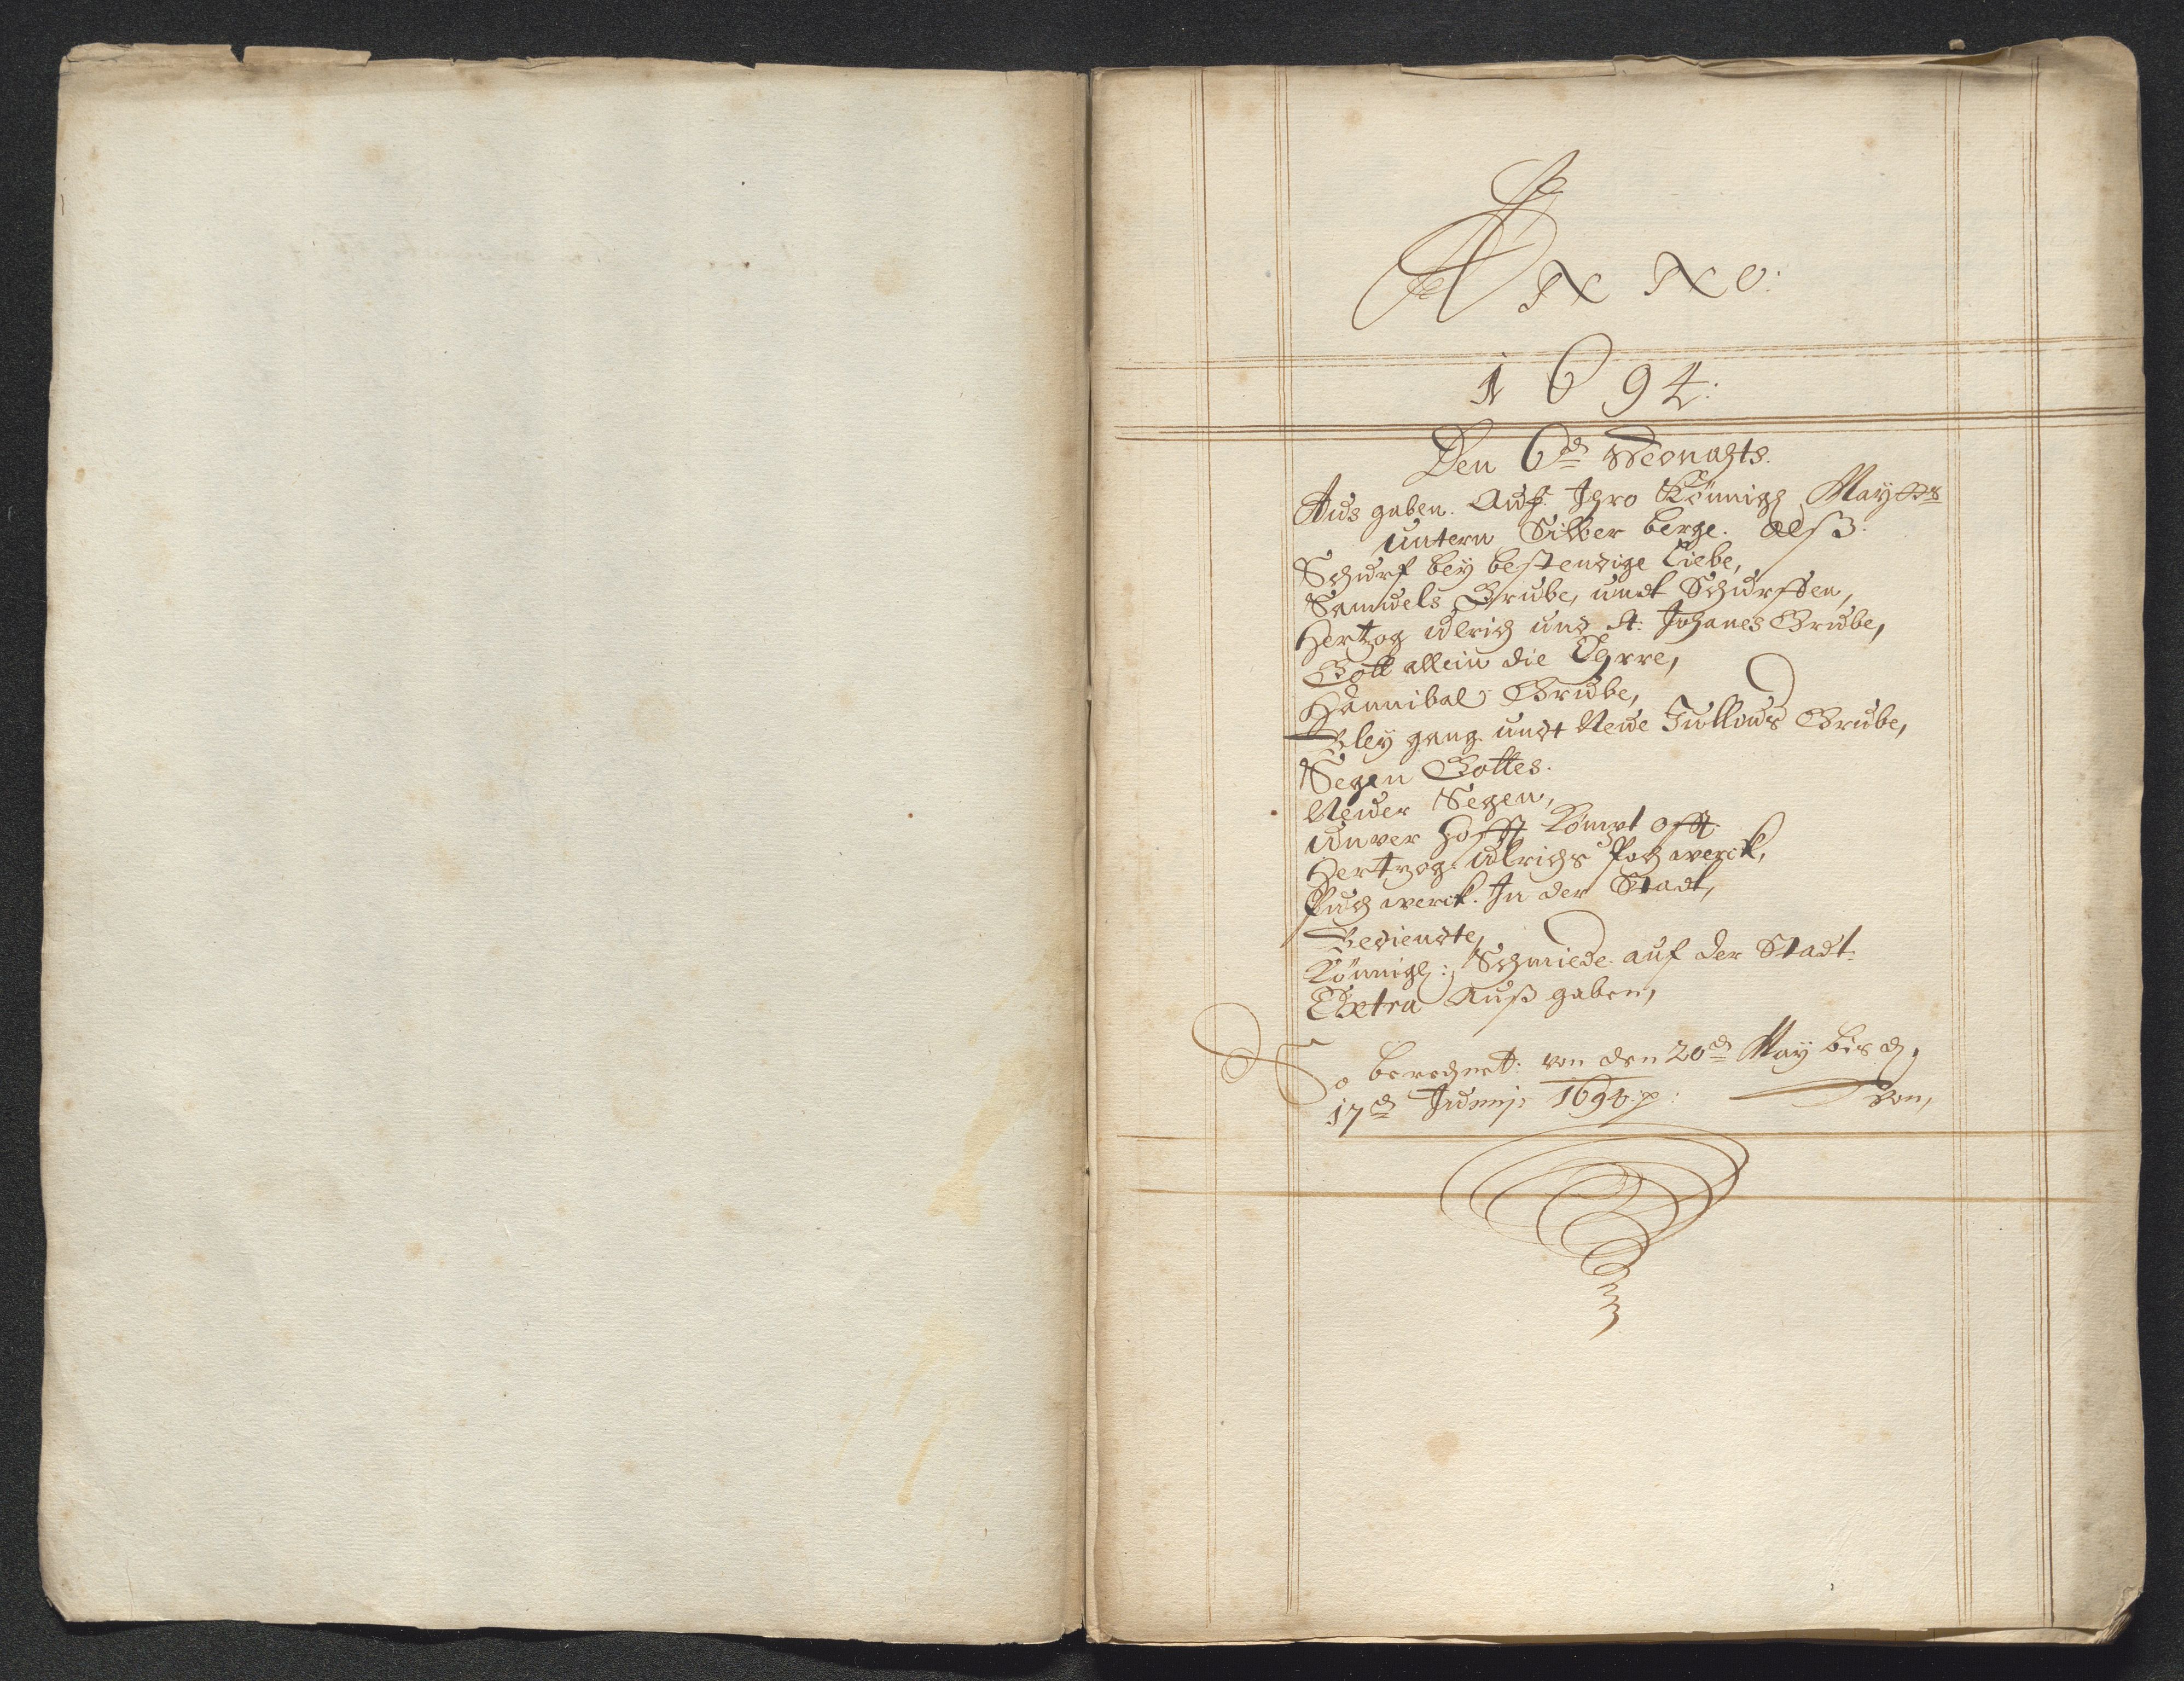 Anno:
1694:
Den 6d Monahts.
Aus gaben. Auf Ihro Königl Maytts
untern Silber berge. alß.
Schurf bey bestendige Liebe,
Samuels Grube, undt Schurffen,
Hertzog Ulrich und St: Johanes Grube,
Gott allein die Ehrre,
Hannibal Grube,
Bley gang undt Neue Jullous Grube,
Segen Gottes.
Neuer Segen,
Unver hofft kömpt offt
Hertzog Ulrichs Puch werck,
Puch werck. In der Stadt,
Bediendte,
Königl: Schmiede auf der Stadt.
Extra Auß gaben,
So berechnet: von den 20d May bis d,
17d Junij: 1694.p:
von,